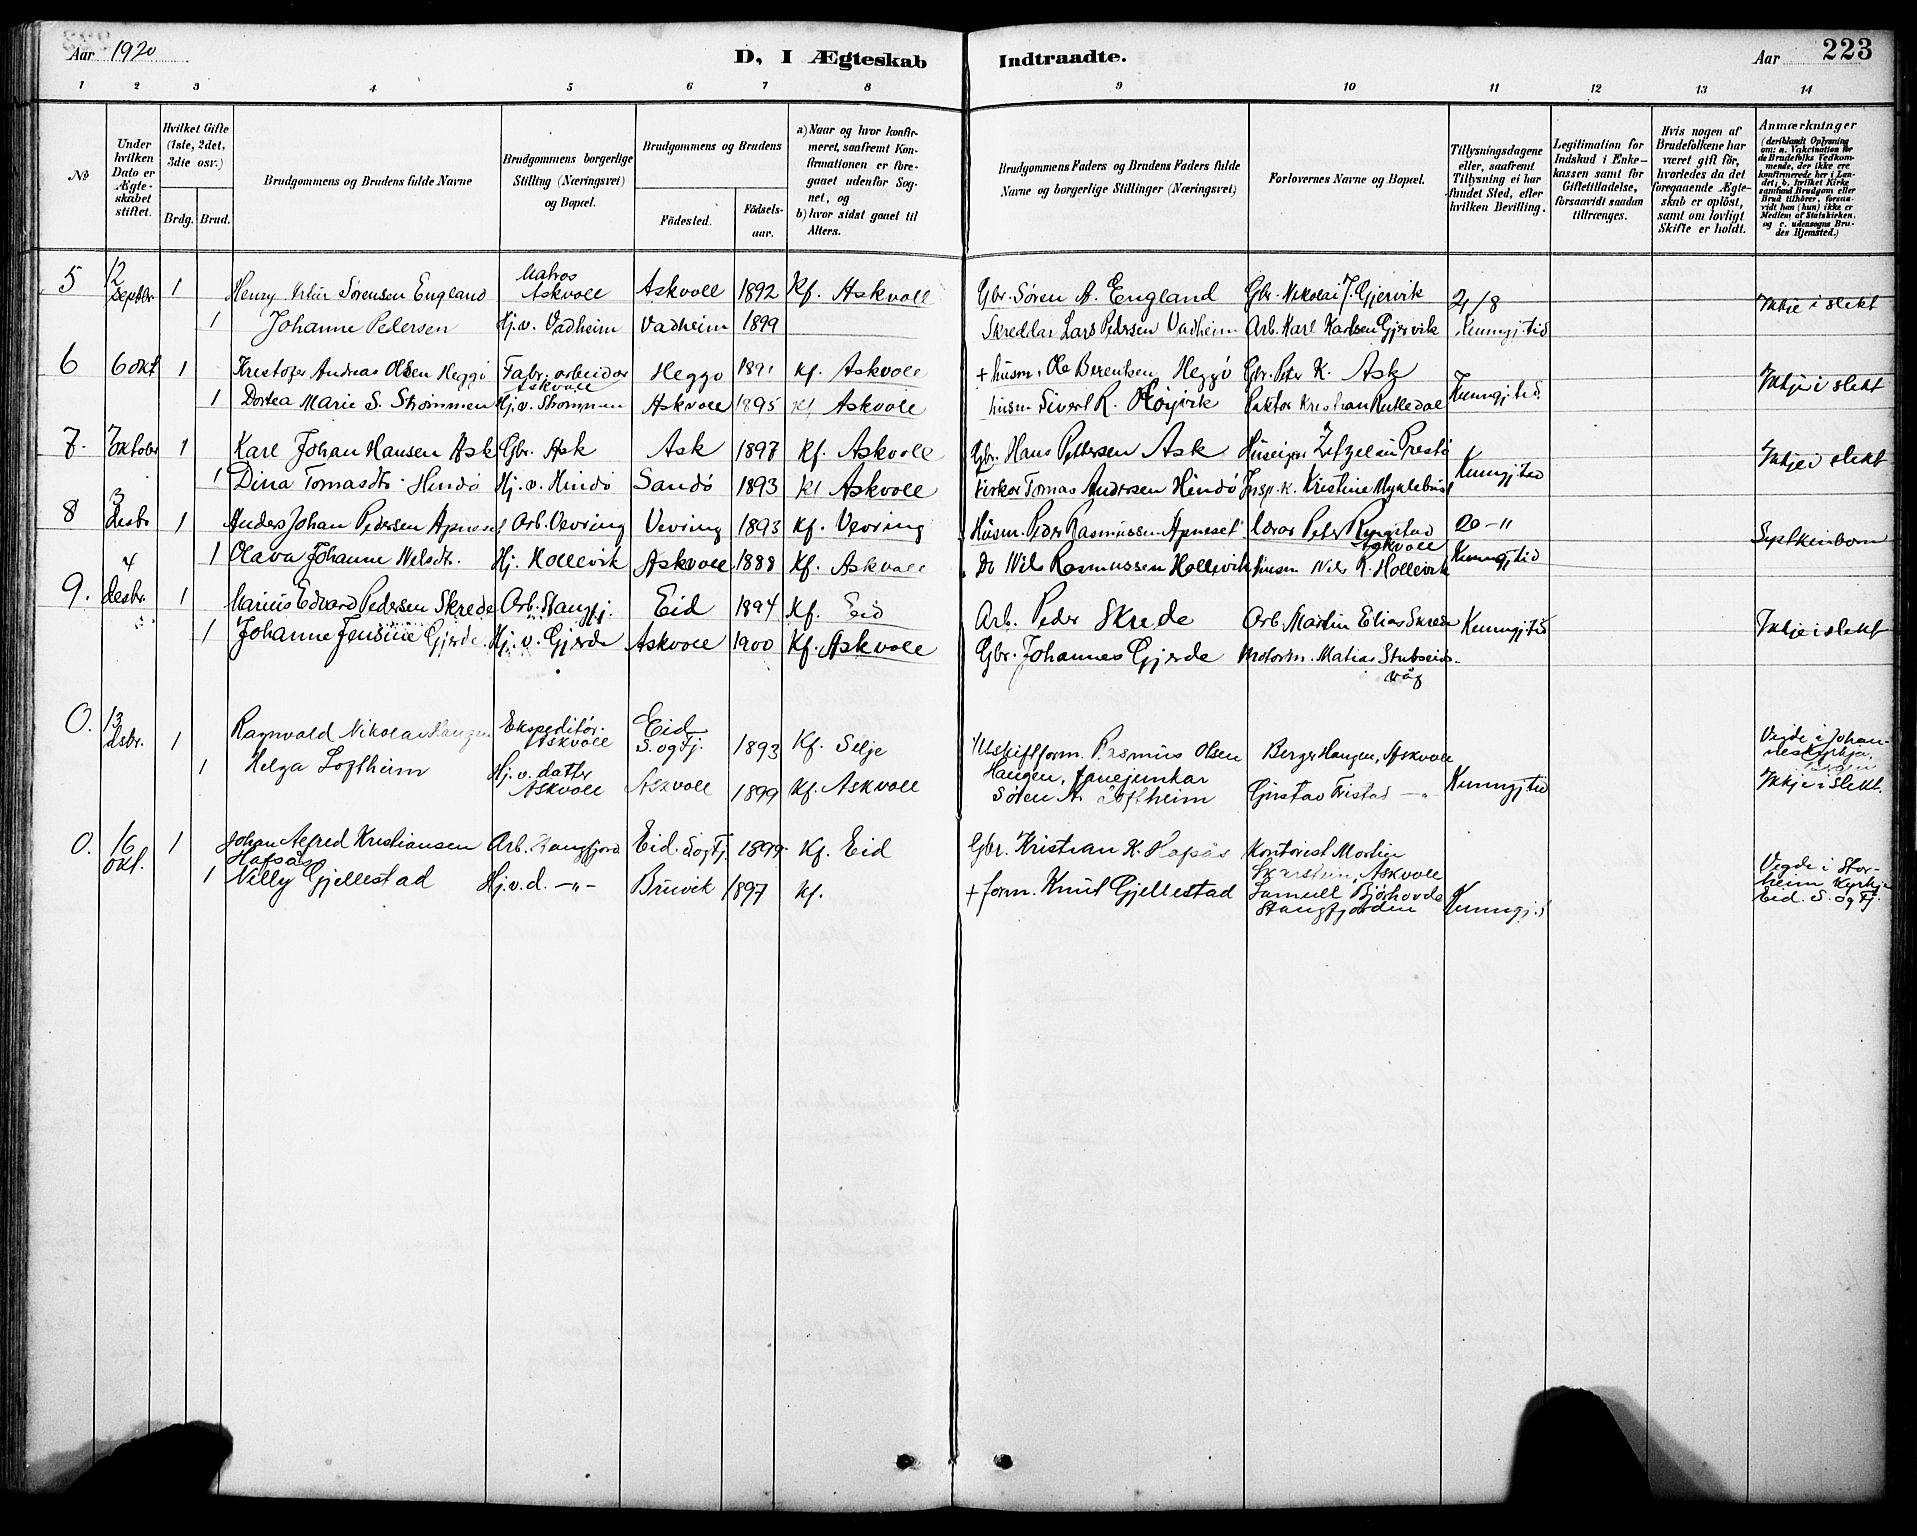 Aar 1920
D, I Ægteskab Indtraadte.
Aar 223
1 2 3 4 5 6 7 8 9 10 11 12 13 14
No
Under hvilken Dato er Ægteskabet stiftet.
Hvilket Gifte (1ste, 2det, 3die osv.)
Brdg. Brud.
Brudgommens og Brudens fulde Navne
Brudgommens borgerlige Stilling (Næringsvei) og Bopæl.
Brudgommens og Brudens
Fødested. Fødselsaar.
a) Naar og hvor konfirmeret, saafremt Konfirmationen er foregaaet udenfor Sognet, og
b) hvor sidst gaaet til Alters.
Brudgommens Faders og Brudens Faders fulde Navne og borgerlige Stillinger (Næringsvei)
Forlovernes Navne og Bopæl.
Tillysningsdagene eller, saafremt Tillysning ei har fundet Sted, efter hvilken Bevilling.
Legitimation for Indskud i Enkekassen samt for Giftetilladelse, forsaavidt saadan tiltrænges.
Hvis nogen af Brudefolkene har været gift før, hvorledes da det foregaaende Ægteskab er opløst, samt om lovligt Skifte er holdt.
Anmærkninger (deriblandt Oplysning om: a. Vakcination for de Brudefolks Vedkommende, der ikke ere konfirmerede her i Landet; b. hvilket Kirkesamfund Brudgom eller Brud tilhører, forsaavidt han (hun) ikke er Medlem af Statskirken, og c. udensogns Brudes Hjemsted.)
5 12 Septbr. 1 Henry Artur Sørensen England Matros Askvoll Askvoll 1892 Kf. Askvoll Gbr. Søren A. England Gbr. Nikolai J. Gjervik 21/8 Ikkje i slekt
1 Johanne Pedersen Hj.v. Vadheim Vadheim 1899 Skreddar Lars Pedersen Vadheim Arb. Karl Karlsen Gjervik Kunngj. tid
6 6 okt 1 Kristofer Andreas Olsen Heggø Fabr. arbeidar Askvoll Heggø 1891 Kf. Askvoll + husm. Ole Berentsen Heggø Gbr. Peter K. Ask Kunngj. tid. Ikkje i slekt
1 Dortea Marie S. Strømmen Hj.v. Strømmen Askvoll 1895 Kf Askvoll husm Sivert R. Høyvik Faktor Kristian Rutledal
7. 7 oktober 1 Karl Johan Hansen Ask Gbr. Ask Ask 1897 Kf. Askvoll Gbr. Hans Pettersen Ask Huseigar Prestø Ikkje i slekt
1 Dina Tomasdtr. Hindø Hj.v. Hindø Sandø 1893 Kf Askvoll Tomas Andersen Hindø Insp.k. Kristine Myklebust Kunngj tid
8 3 Desbr 1 Anders Johan Pedersen Apneset Arb. Vevring Vevring 1893 Kf. Vevring Husm. Peder Rasmussen Apneset Lærar Peter Ringstad Askvoll 20-11 Syskenborn
1 Olava Johanne Nilsdtr. Hj. Hollevik Askvoll 1888 Kf. Askvoll Do Nils Rasmussen Hollevik husm Nils R. Hollevik Kunngj tid
9. 4 Desbr. 1 Marius Edvard Pedersen Skrede Arb. Stangfj. Eid 1894 Kf. Eid Arb. Peder Skrede Arb. Martin Elias Skrede Kunngj. tid Ikkje i slekt
1 Johanne Jensine Gjerde. Hj.v. Gjerde Askvoll 1900 Kf. Askvoll Gbr. Johannes Gjerde Motorm. Matias Stubseidvåg
0. 13 dsbr. 1 Ragnvald Nikolai Haugen Ekspeditør. Askvoll Eid S. og Fj. 1893 Kf. Selje Utskiftform. Rasmus Olsen Haugen, Berge Haugen, Askvoll Vigde i Johanneskyrkja, Bergen
1 Helga Loftheim Hj.v. datter Askvoll Askvoll 1899 Kf. Askvoll Søren A. Loftheim Gustav Tristad -"- Kunngj tid Ikkje i slekt.
0. 16 okt. 1 Johan Alfred Kristiansen Hafsås Arb. Stangfjord Eid. S og Fj. 1899 Kf. Eid Gbr. Kristian K. Hafsås Kontorist Martin Skarstein, Askvoll Vigde i Storheim Kyrkje Eid. S. og Fj.
1 Nelly Gjellestad Hj.v.d. -"- Bruvik 1897 Kf. + form. Knut Gjellestad Samuell Bjørhovde Stangfjorden Kunngj.